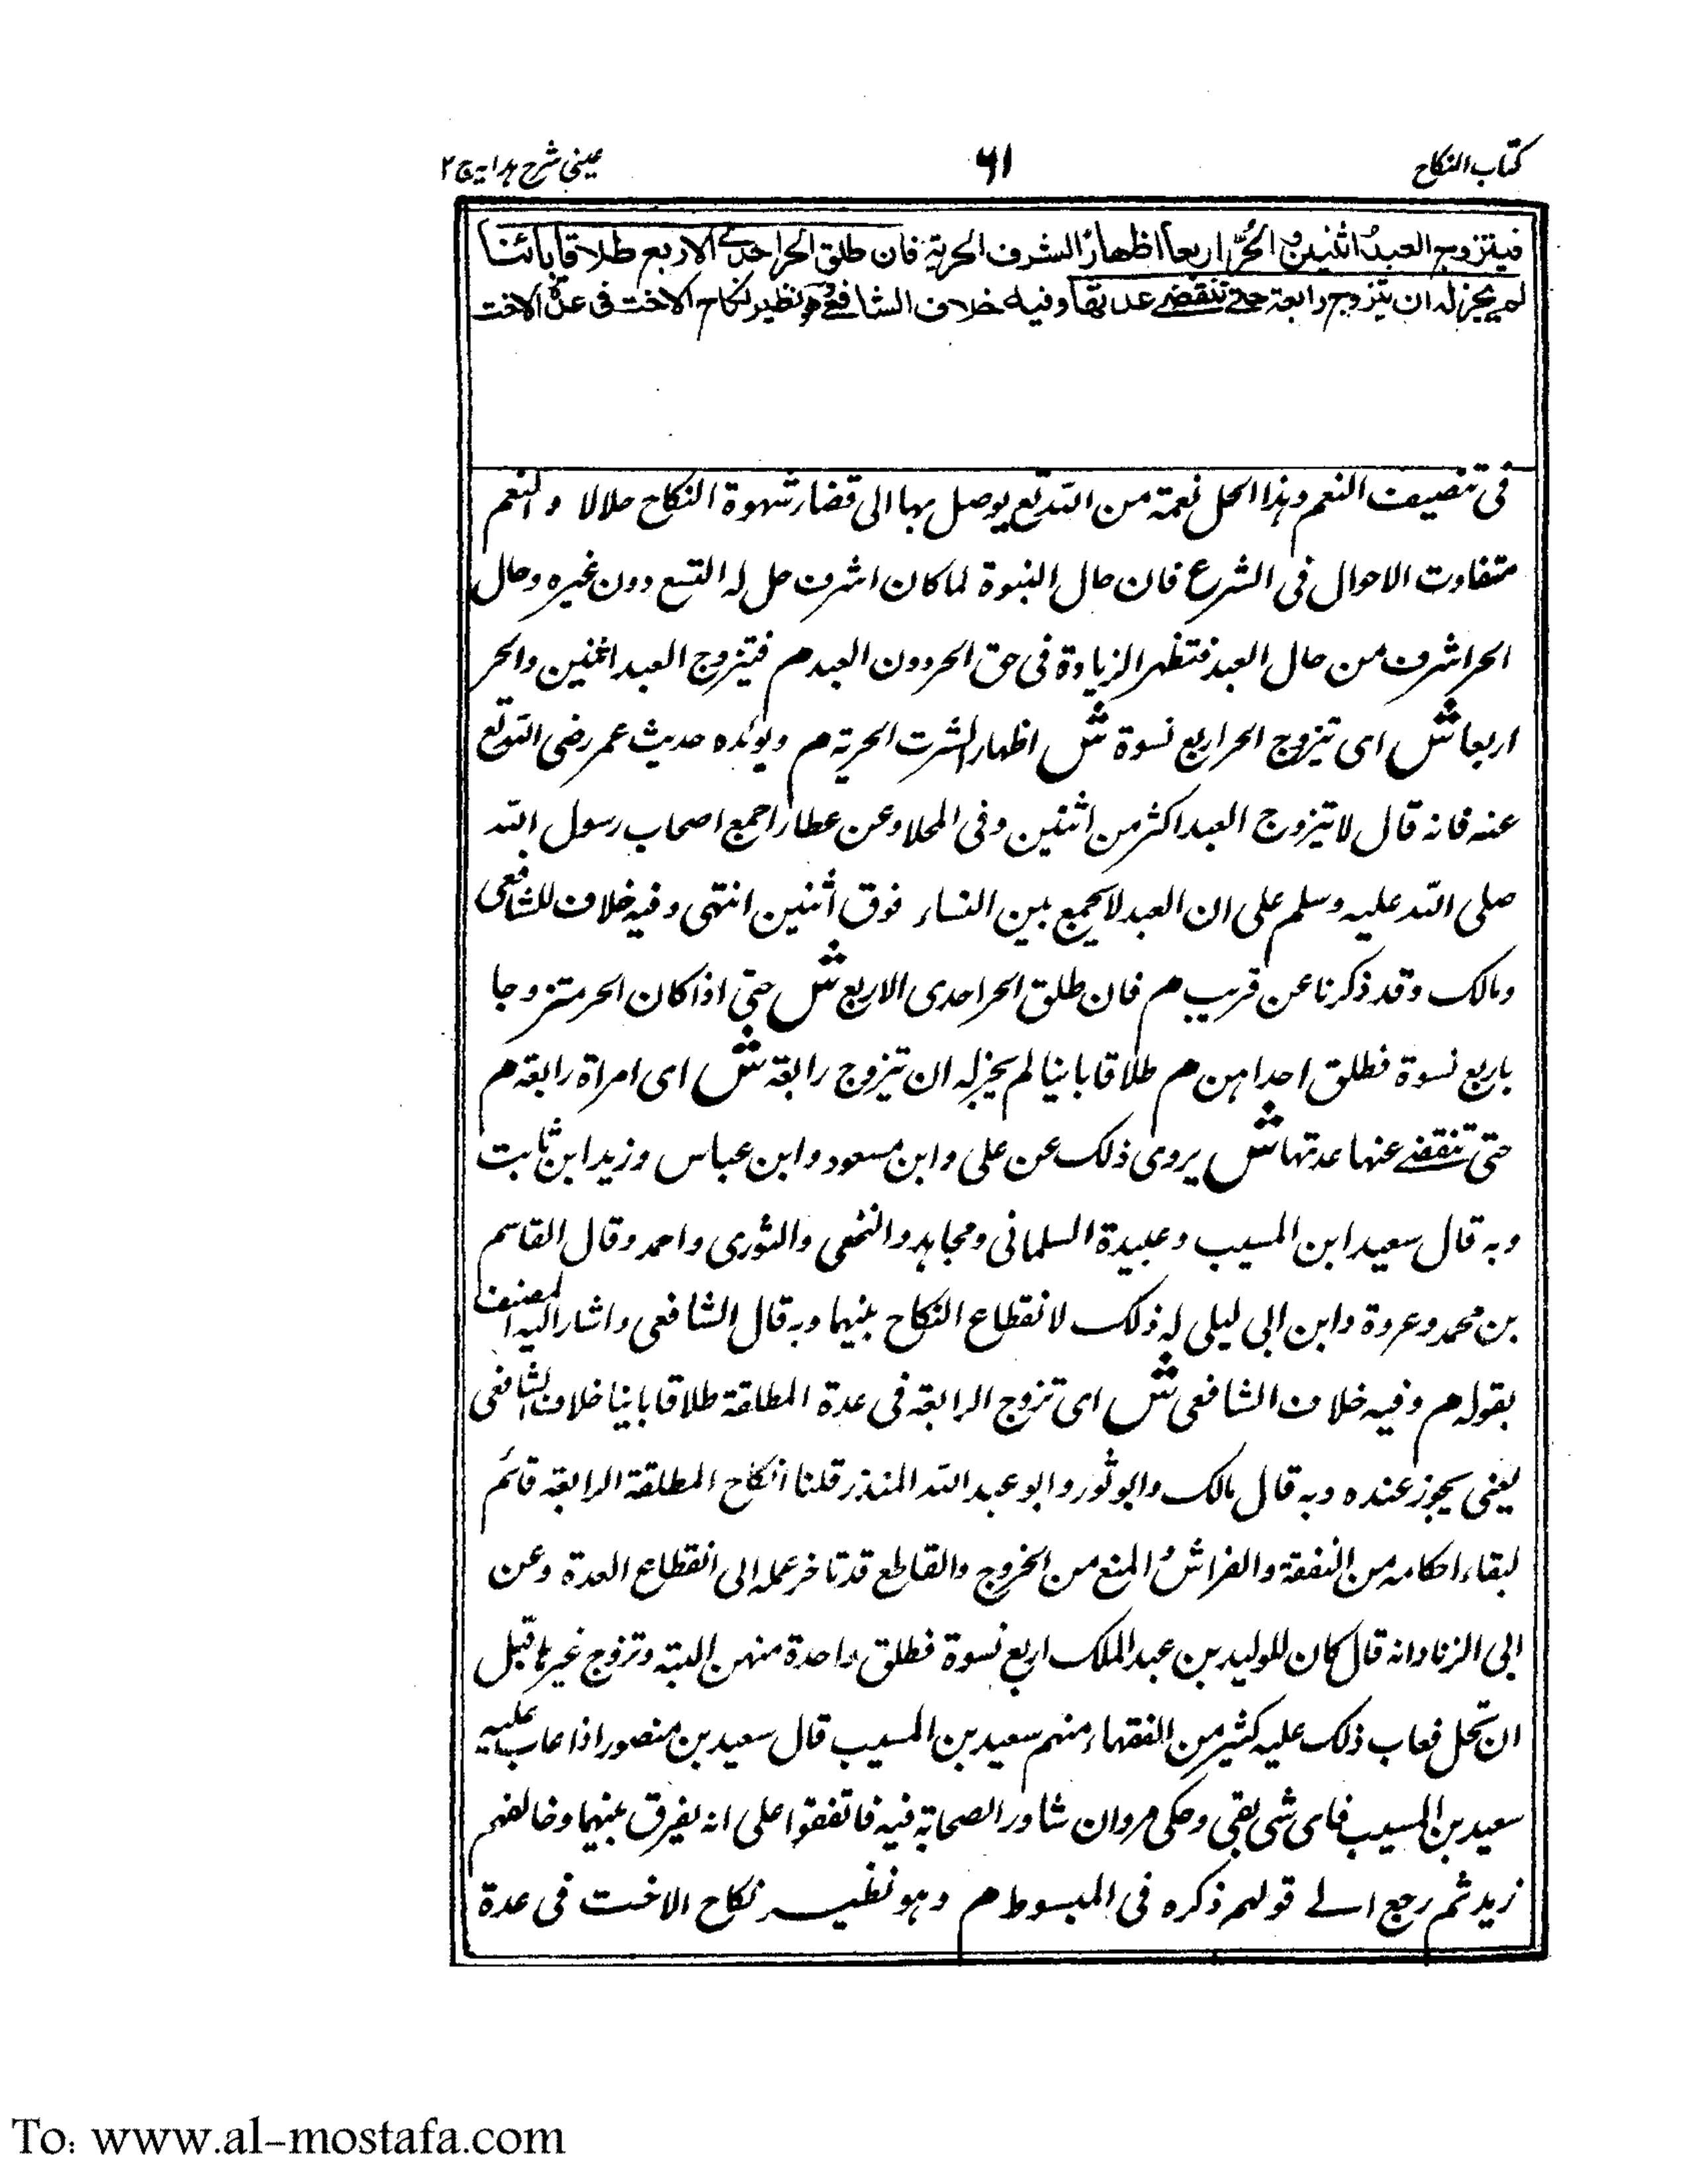 كتاب النكاح
٦١
عينى شرح هدايه ج ٢
فيتزوج العبدُ اثنين والحُرُّ اربعا اظهارًا لشرف الحرية فان طلق الحر احدى الاربع طلاقا بائنا
لم يجز له ان يتزوج رابعة حتى تنقضے عدتها وفيه خلاف الشافعي وهو نظير نكاح الاخت فى عدة الاخت
فى تنصيف النعم وهذا الحل نعمة من الله تع يوصل بها الى قضار شهوة النكاح حلالا والنعم
متفاوت الاحوال فى الشرع فان حال النبوة لما كان اشرف حل له التسع دون غيره وحال
الحر اشرف من حال العبد فتظهر الزيادة فى حق الحر دون العبد م فيتزوج العبد اثنين والحر
اربعا ش اى تيزوج الحر اربع نسوة ش اظهار الشرف الحرية م ويؤيده حديث عمر رضى الله تع
عنه فانه قال لا تيزوج العبد اكثر من اثنين وفى المحلا وعن عطار اجمع اصحاب رسول الله
صلى الله عليه وسلم على ان العبد لا يجمع بين النساء فوق اثنين انتهى وفيه خلاف للشافعى
ومالك وقد ذكرنا عن قريب م فان طلق الحر احدى الاربع ش حتى اذا كان الحر متزوجا
باربع نسوة فطلق احداهن م طلاقا باينا لم يجز له ان تيزوج رابعة ش اى امراة رابعة م
حتى تنقضے عنها عدتها ش يروى ذلك عن على وابن مسعود وابن عباس وزيد ابن ثابت
وبه قال سعيد ابن المسيب وعبيدة السلمانى ومجاهد والنخعى والثورى واحمد وقال القاسم
بن محمد وعروة وابن ابى ليلى له ذلك لانقطاع النكاح بينهما وبه قال الشافعى واشار اليه المصنف
بقوله م وفيه خلاف الشافعى ش اى تزوج الرابعة فى عدة المطلقة طلاقا باينا خلاف الشافعى
يعنى يجوز عنده وبه قال مالك وابو ثور وابو عبد الله المنذر قلنا انكاح المطلقة الرابعة قائم
لبقاء احكامه من النفقة والفراش والمنع من الخروج والقاطع قد تاخر عمله الى انقطاع العدة وعن
ابى الزناد انه قال كان للوليد بن عبد الملك اربع نسوة فطلق واحدة منهن البتة وتزوج غيرها قبل
ان تحل فعاب ذلك عليه كثير من الفقهاء منهم سعيد بن المسيب قال سعيد بن منصور اذا عاب عليه
سعيد بن المسيب فاى شى بقى وحكى مروان شاور الصحابة فيه فاتفقوا على انه يفرق بينهما وخالفهم
زيد ثم رجع الے قولهم ذكره فى المبسوط م وهو نظيـر نكاح الاخت فى عدة
To: www.al-mostafa.com